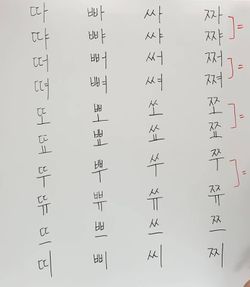 따 빠 싸 짜
땨 뺘 쌰 쨔 =
떠 뻐 써 쩌
뗘 뼈 쎠 쪄 =
또 뽀 쏘 쪼
뚀 뾰 쑈 쬬 =
뚜 뿌 쑤 쭈
뜌 쀼 쓔 쮸 =
뜨 쁘 쓰 쯔
띠 삐 씨 찌